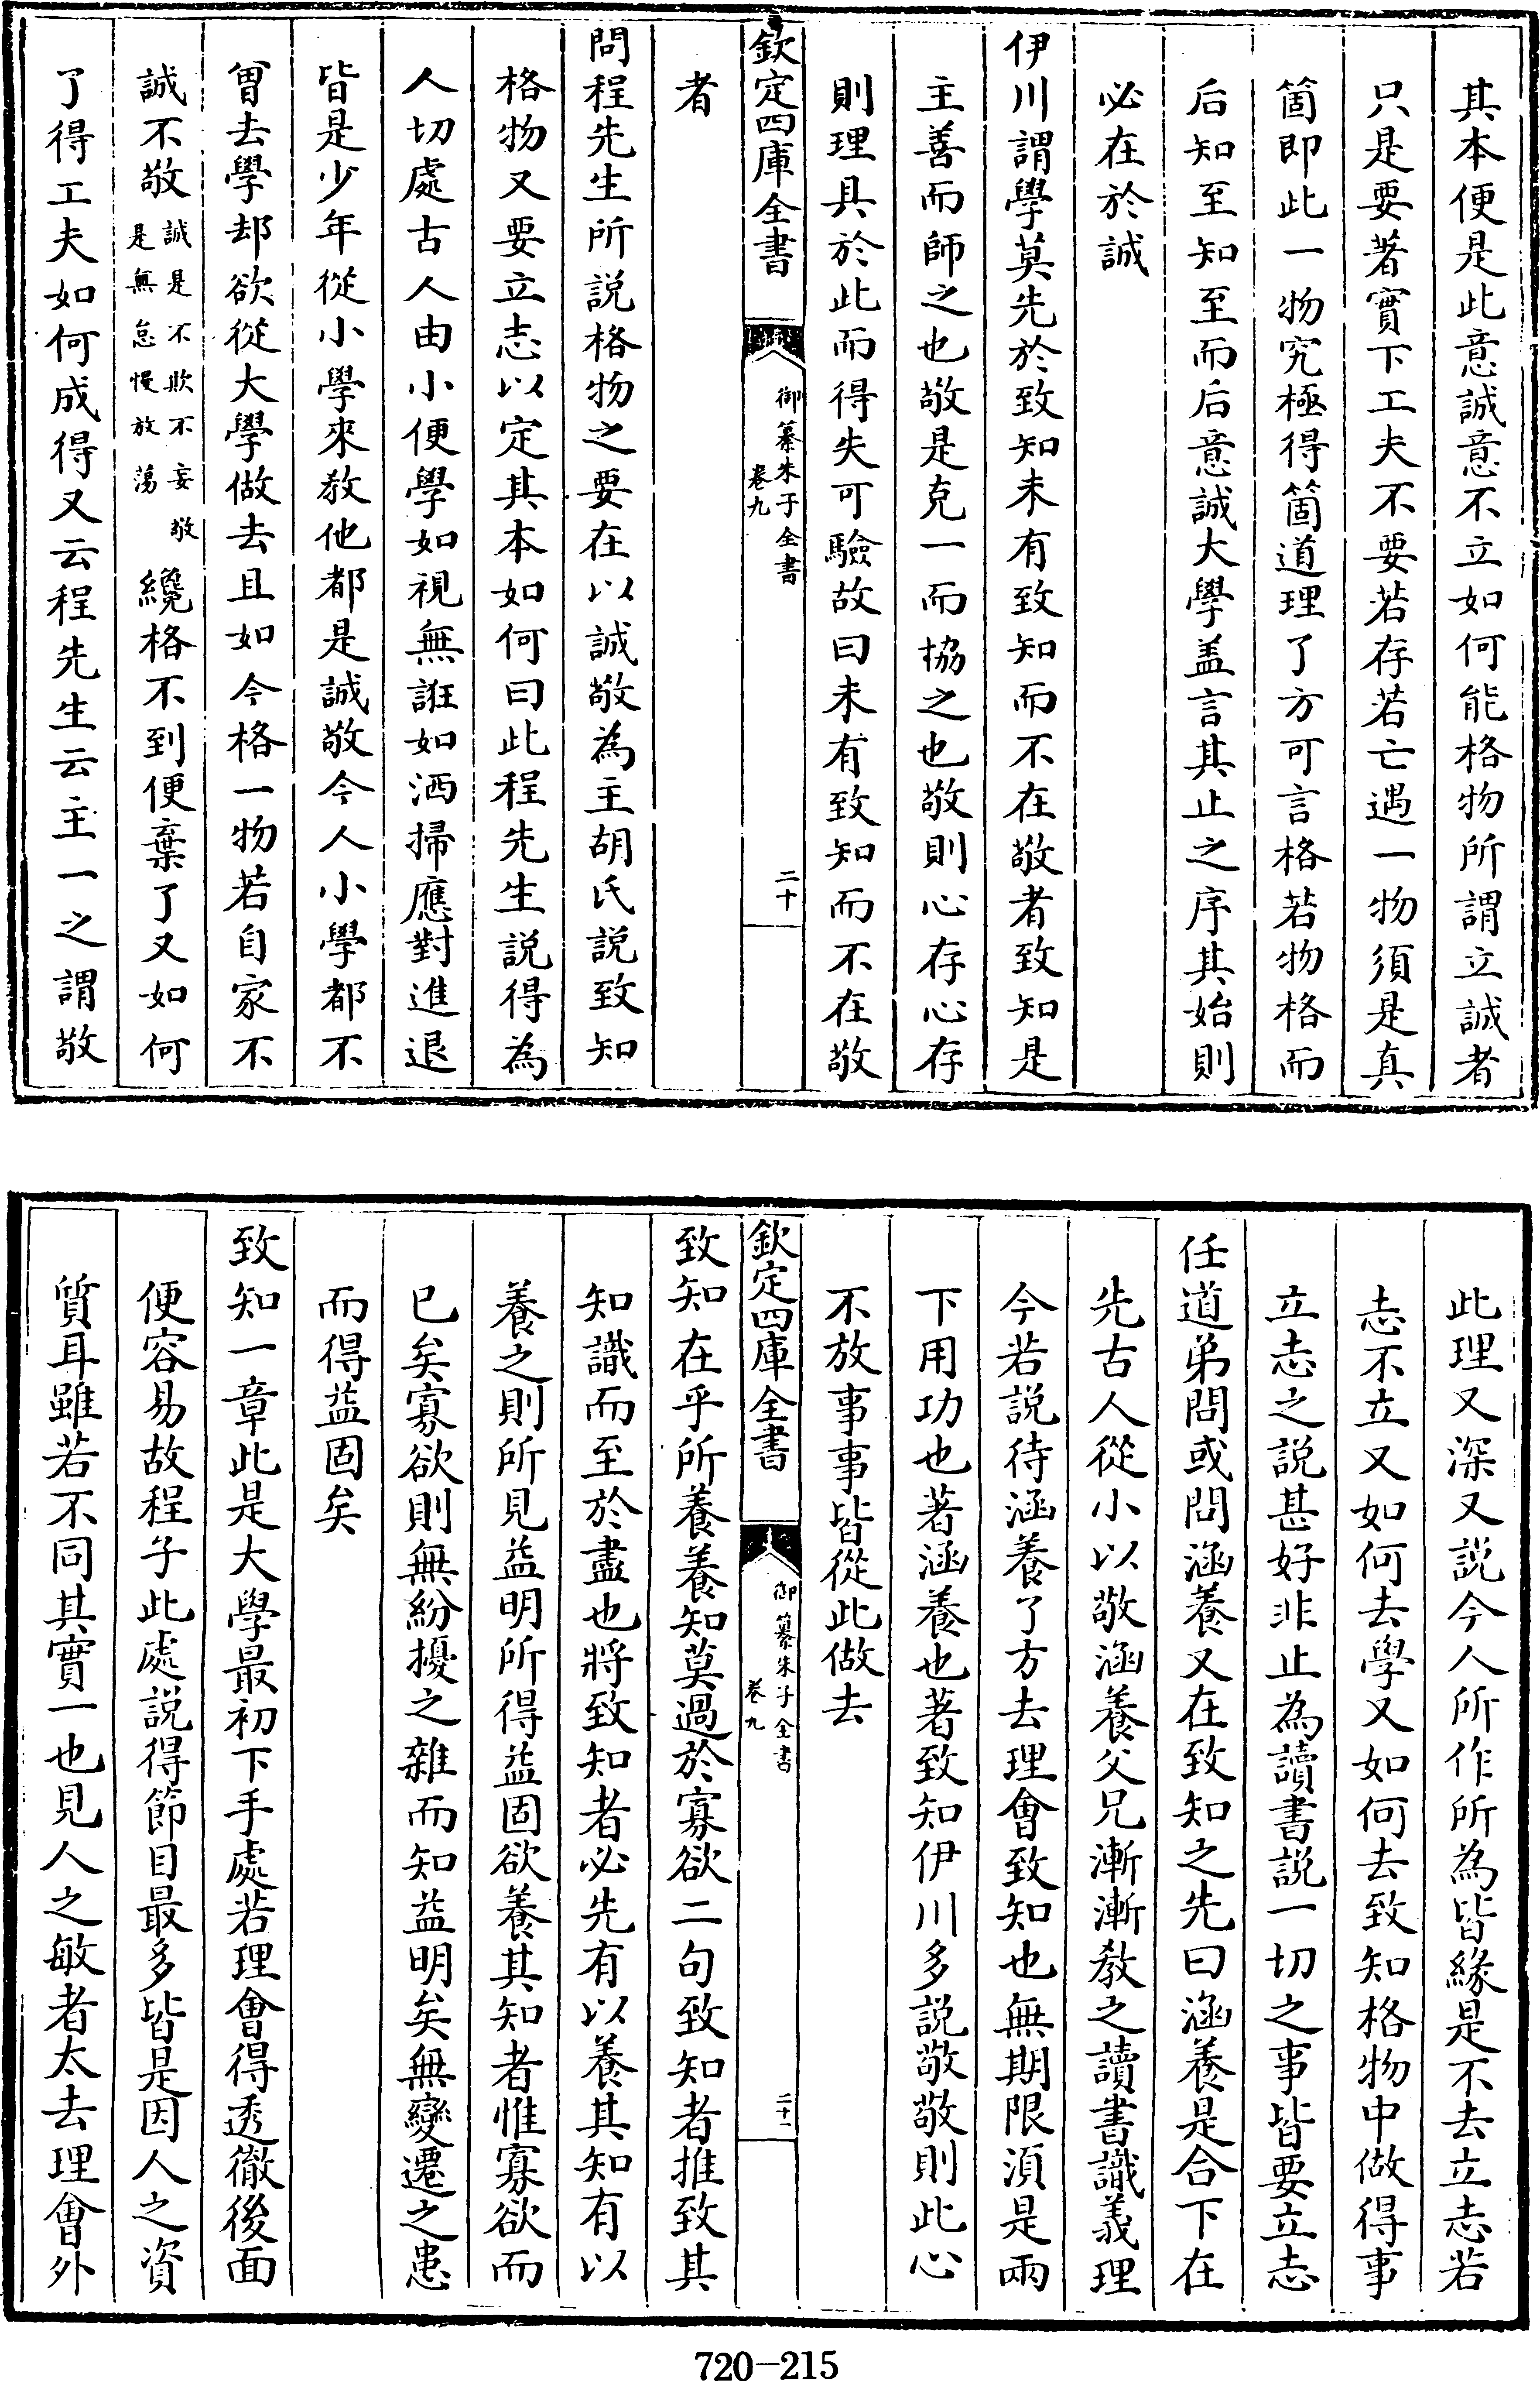 其本便是此意誠意不立如何能格物所謂立誠者
只是要著實下工夫不要若存若亡遇一物須是真
箇即此一物究極得箇道理了方可言格若物格而
后知至知至而后意誠大學盖言其止之序其始則
必在於誠
伊川謂學莫先於致知未有致知而不在敬者致知是
主善而師之也敬是克一而協之也敬則心存心存
則理具於此而得失可驗故曰未有致知而不在敬
者
欽定四庫全書
御纂朱子全書
卷九
二十
問程先生所説格物之要在以誠敬為主胡氏説致知
格物又要立志以定其本如何曰此程先生説得為
人切處古人由小便學如視無誑如洒掃應對進退
皆是少年從小學來教他都是誠敬今人小學都不
曾去學却欲從大學做去且如今格一物若自家不
誠不敬誠是不欺不妄敬是無怠慢放蕩纔格不到便棄了又如何
了得工夫如何成得又云程先生云主一之謂敬
此理又深又説今人所作所為皆緣是不去立志若
志不立又如何去學又如何去致知格物中做得事
立志之説甚好非止為讀書説一切之事皆要立志
任道弟問或問涵養又在致知之先曰涵養是合下在
先古人從小以敬涵養父兄漸漸教之讀書識義理
今若説待涵養了方去理會致知也無期限須是兩
下用功也著涵養也著致知伊川多説敬敬則此心
不放事事皆從此做去
欽定四庫全書
御纂朱子全書
卷九
二十一
致知在乎所養養知莫過於寡欲二句致知者推致其
知識而至於盡也將致知者必先有以養其知有以
養之則所見益明所得益固欲養其知者惟寡欲而
已矣寡欲則無紛擾之雜而知益明矣無變遷之患
而得益固矣
致知一章此是大學最初下手處若理會得透徹後面
便容易故程子此處説得節目最多皆是因人之資
質耳雖若不同其實一也見人之敏者太去理會外
720-215